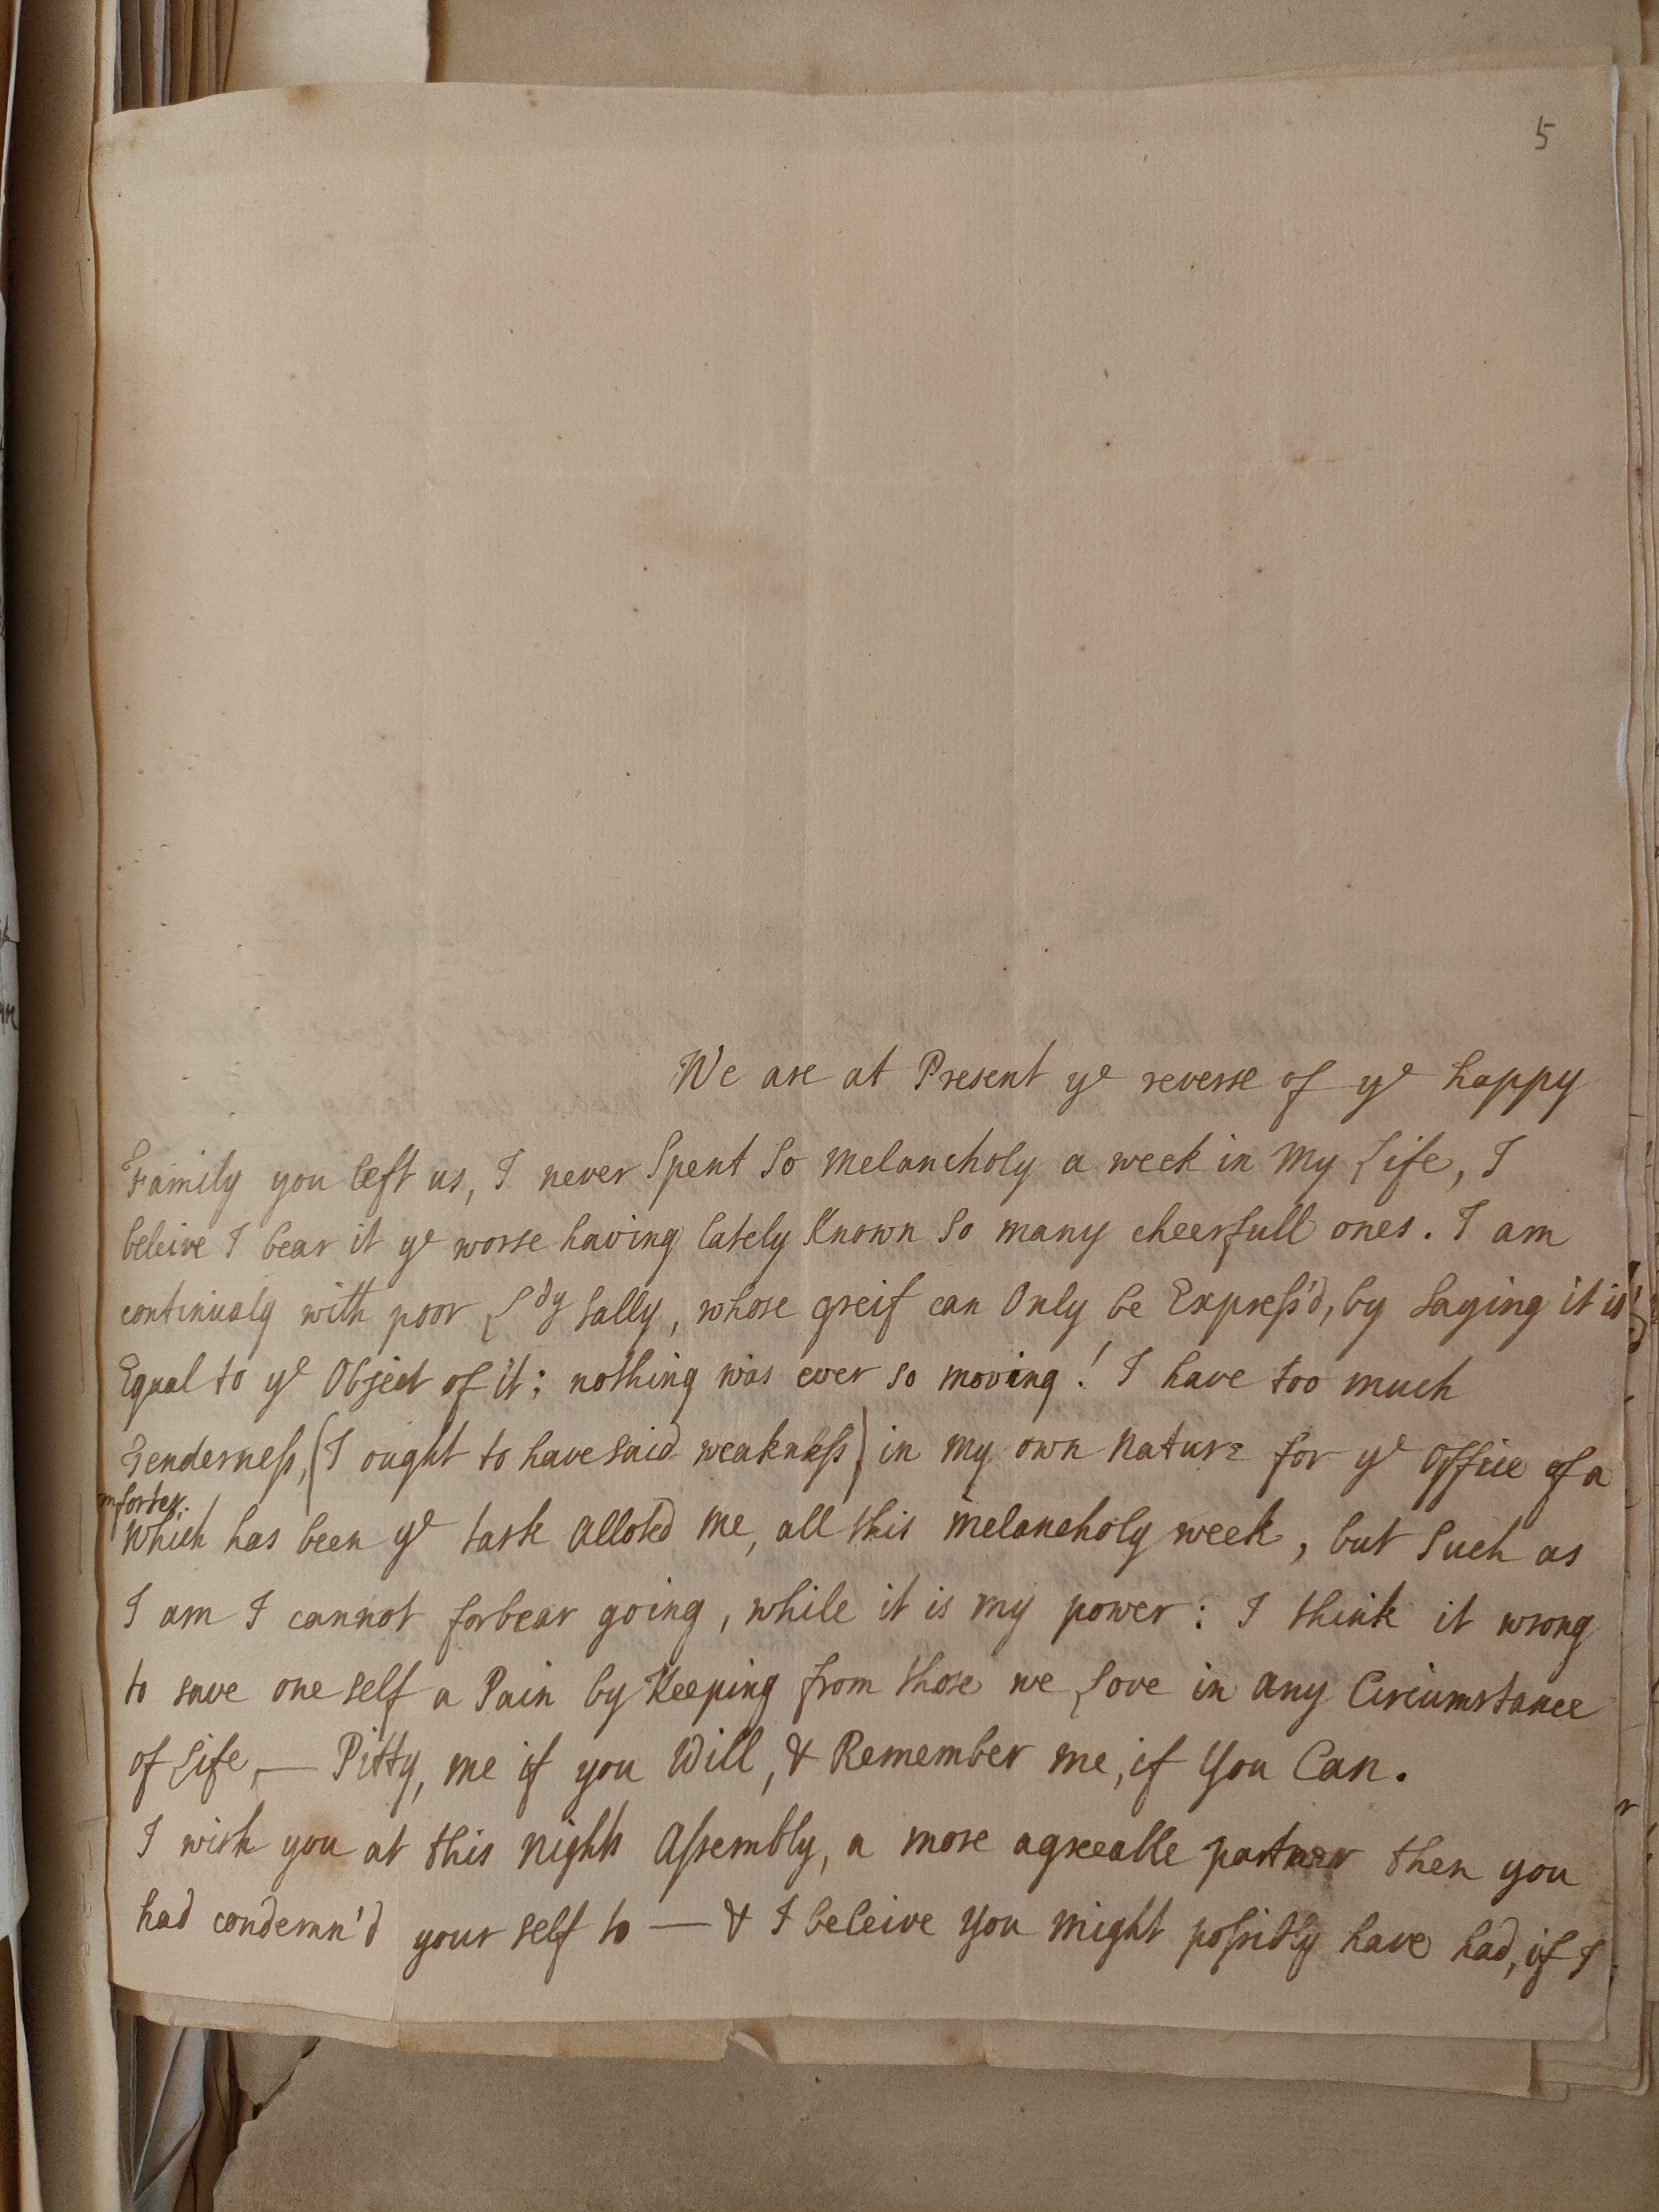 5
We are at Present ye reverse of ye happy
Family you left us, I never Spent So melancholy a week in My Life, I
beleive I bear it ye worse having lately Known So many cheerfull ones. I am
continualy with poor Ldy Sally, whose greif can Only be Express'd, by Saying it is
Equal to ye Object of it; nothing was ever so moving! I have too much
Tenderness, (I ought to have said weakness) in my own nature for ye Office of a
mforter.
Which has been ye task alloted me, all this melancholy week, but Such as
I am I cannot forbear going, while it is my power: I think it wrong
to save one self a Pain by Keeping from those we Love in any Circumstance
of Life, — Pitty, me if you Will, & Remember me, if You Can.
I wish you at this nights Assembly, a more agreeable partner then you
had condemn'd your self to — & I beleive you might possibly have had, if I